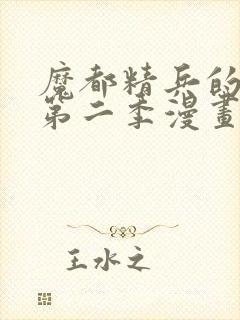 魔都精兵的
第二季漫畫
王水之